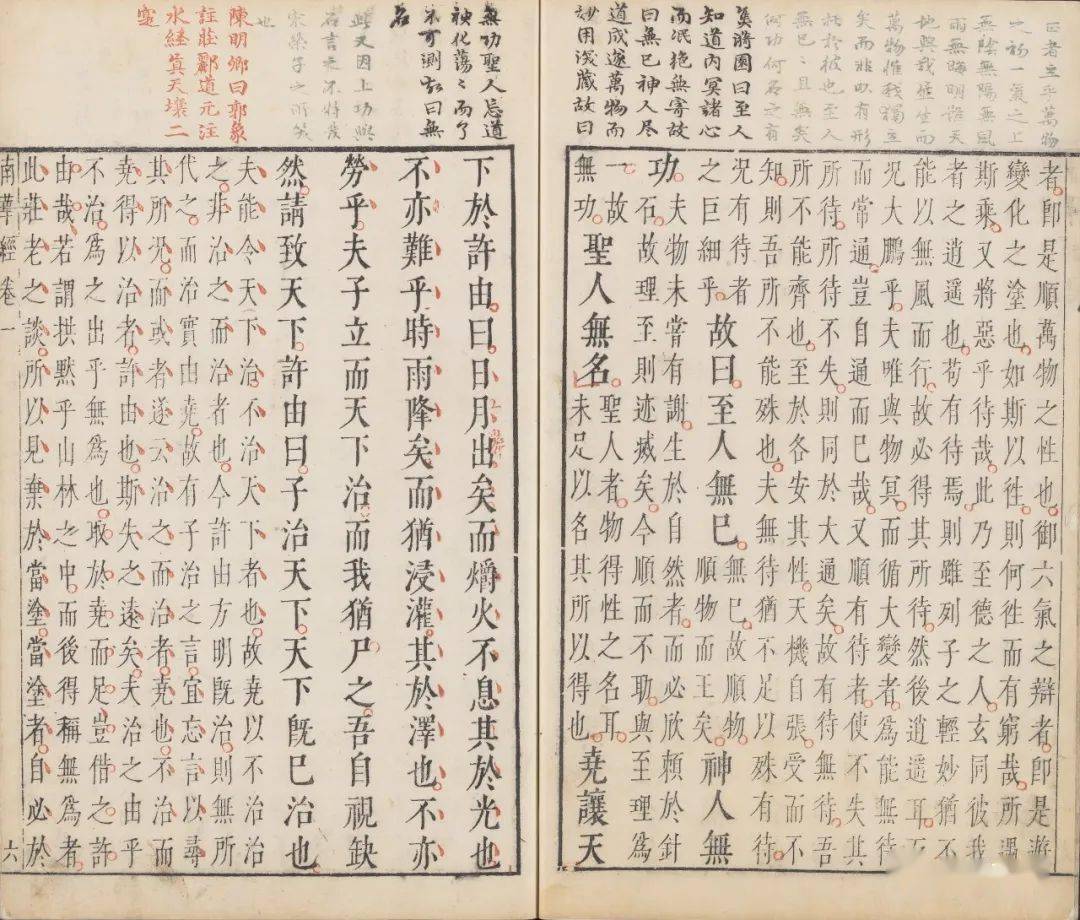 者即是順萬物之性也御六氣之辯者即是遊
變化之塗也如斯以徃則何徃而有窮哉所遇
斯乘又將惡乎待哉此乃至德之人玄同彼我
者之逍遥也苟有待焉則雖列子之輕妙猶不
能以無風而行故必得其所待然後逍遥耳
况大鵬乎夫唯與物冥而循大變者爲能無待
而常通豈自通而已哉又順有待者使不失其
所待所待不失則同於大通矣故有待無待吾
所不能齊也至於各安其性天機自張受而不
知則吾所不能殊也夫無待猶不足以殊有待
况有待者
之巨細乎
故曰至人無巳
無巳故順物
順物而王矣
神人無
功
夫物未嘗有謝生於自然者而必欣賴於針
石故理至則迹滅矣今順而不助與至理爲
一故
無功
聖人無名
聖人者物得性之名耳
未足以名其所以得也
堯讓天
下於許由曰日月出矣而爝火不息其於光也
不亦難乎時雨降矣而猶浸灌其於澤也不亦
勞乎夫子立而天下治而我猶尸之吾自視缺
然請致天下許由曰子治天下天下既已治也
夫能令天下治不治天下者也故堯以不治治
之非治之而治者也今許由方明既治則無所
代之而治實由堯故有子治之言宜忘言以尋
其所况而或者遂云治之而治者堯也不治而
堯得以治者許由也斯失之遠矣夫治之由乎
不治爲之出乎無爲也取於堯而足豈借之許
由哉若謂拱默乎山林之中而後得稱無爲者
此莊老之談所以見棄於當塗當塗者自必於
南華經卷一
六
萬物惟我獨立
矣而非以有形
托於彼也至人
無已已且無矣
何功何名之有
奚將園曰至人
知道内冥諸心
而泯絶無寄故
曰無已神人尽
道成遂萬物而
妙用深藏故曰
無功聖人忘道
神化蕩蕩而了
不可測故曰無
名
陳明卿曰郭象
註莊酈道元注
水経真天壤二